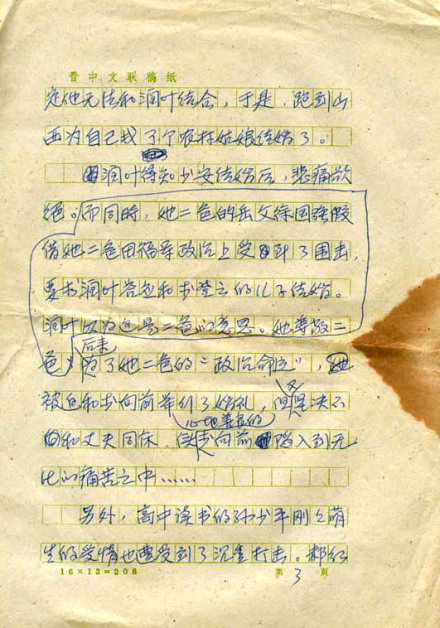 晋中文联稿纸
定他无法和润叶结合，于是，跑到山
西为自己找了个农村姑娘结婚了。
润叶得知少安结婚后，悲痛欲
绝。而同时，她二爸的岳父徐国强假
借她二爸田福军政治上受到了围击，
要求润叶答应和李登云的儿子结婚。
润叶以为这是二爸的意思。她尊敬二
爸，后来为了她二爸的“政治命运”，
被迫和李向前举行了婚礼，但又坚决不
和丈夫同床，使心地善良的李向前陷入到无
比的痛苦之中……
另外，高中读书的孙少平刚刚萌
生的爱情也遭受到了沉重打击。郝红
16×13=208 第3页